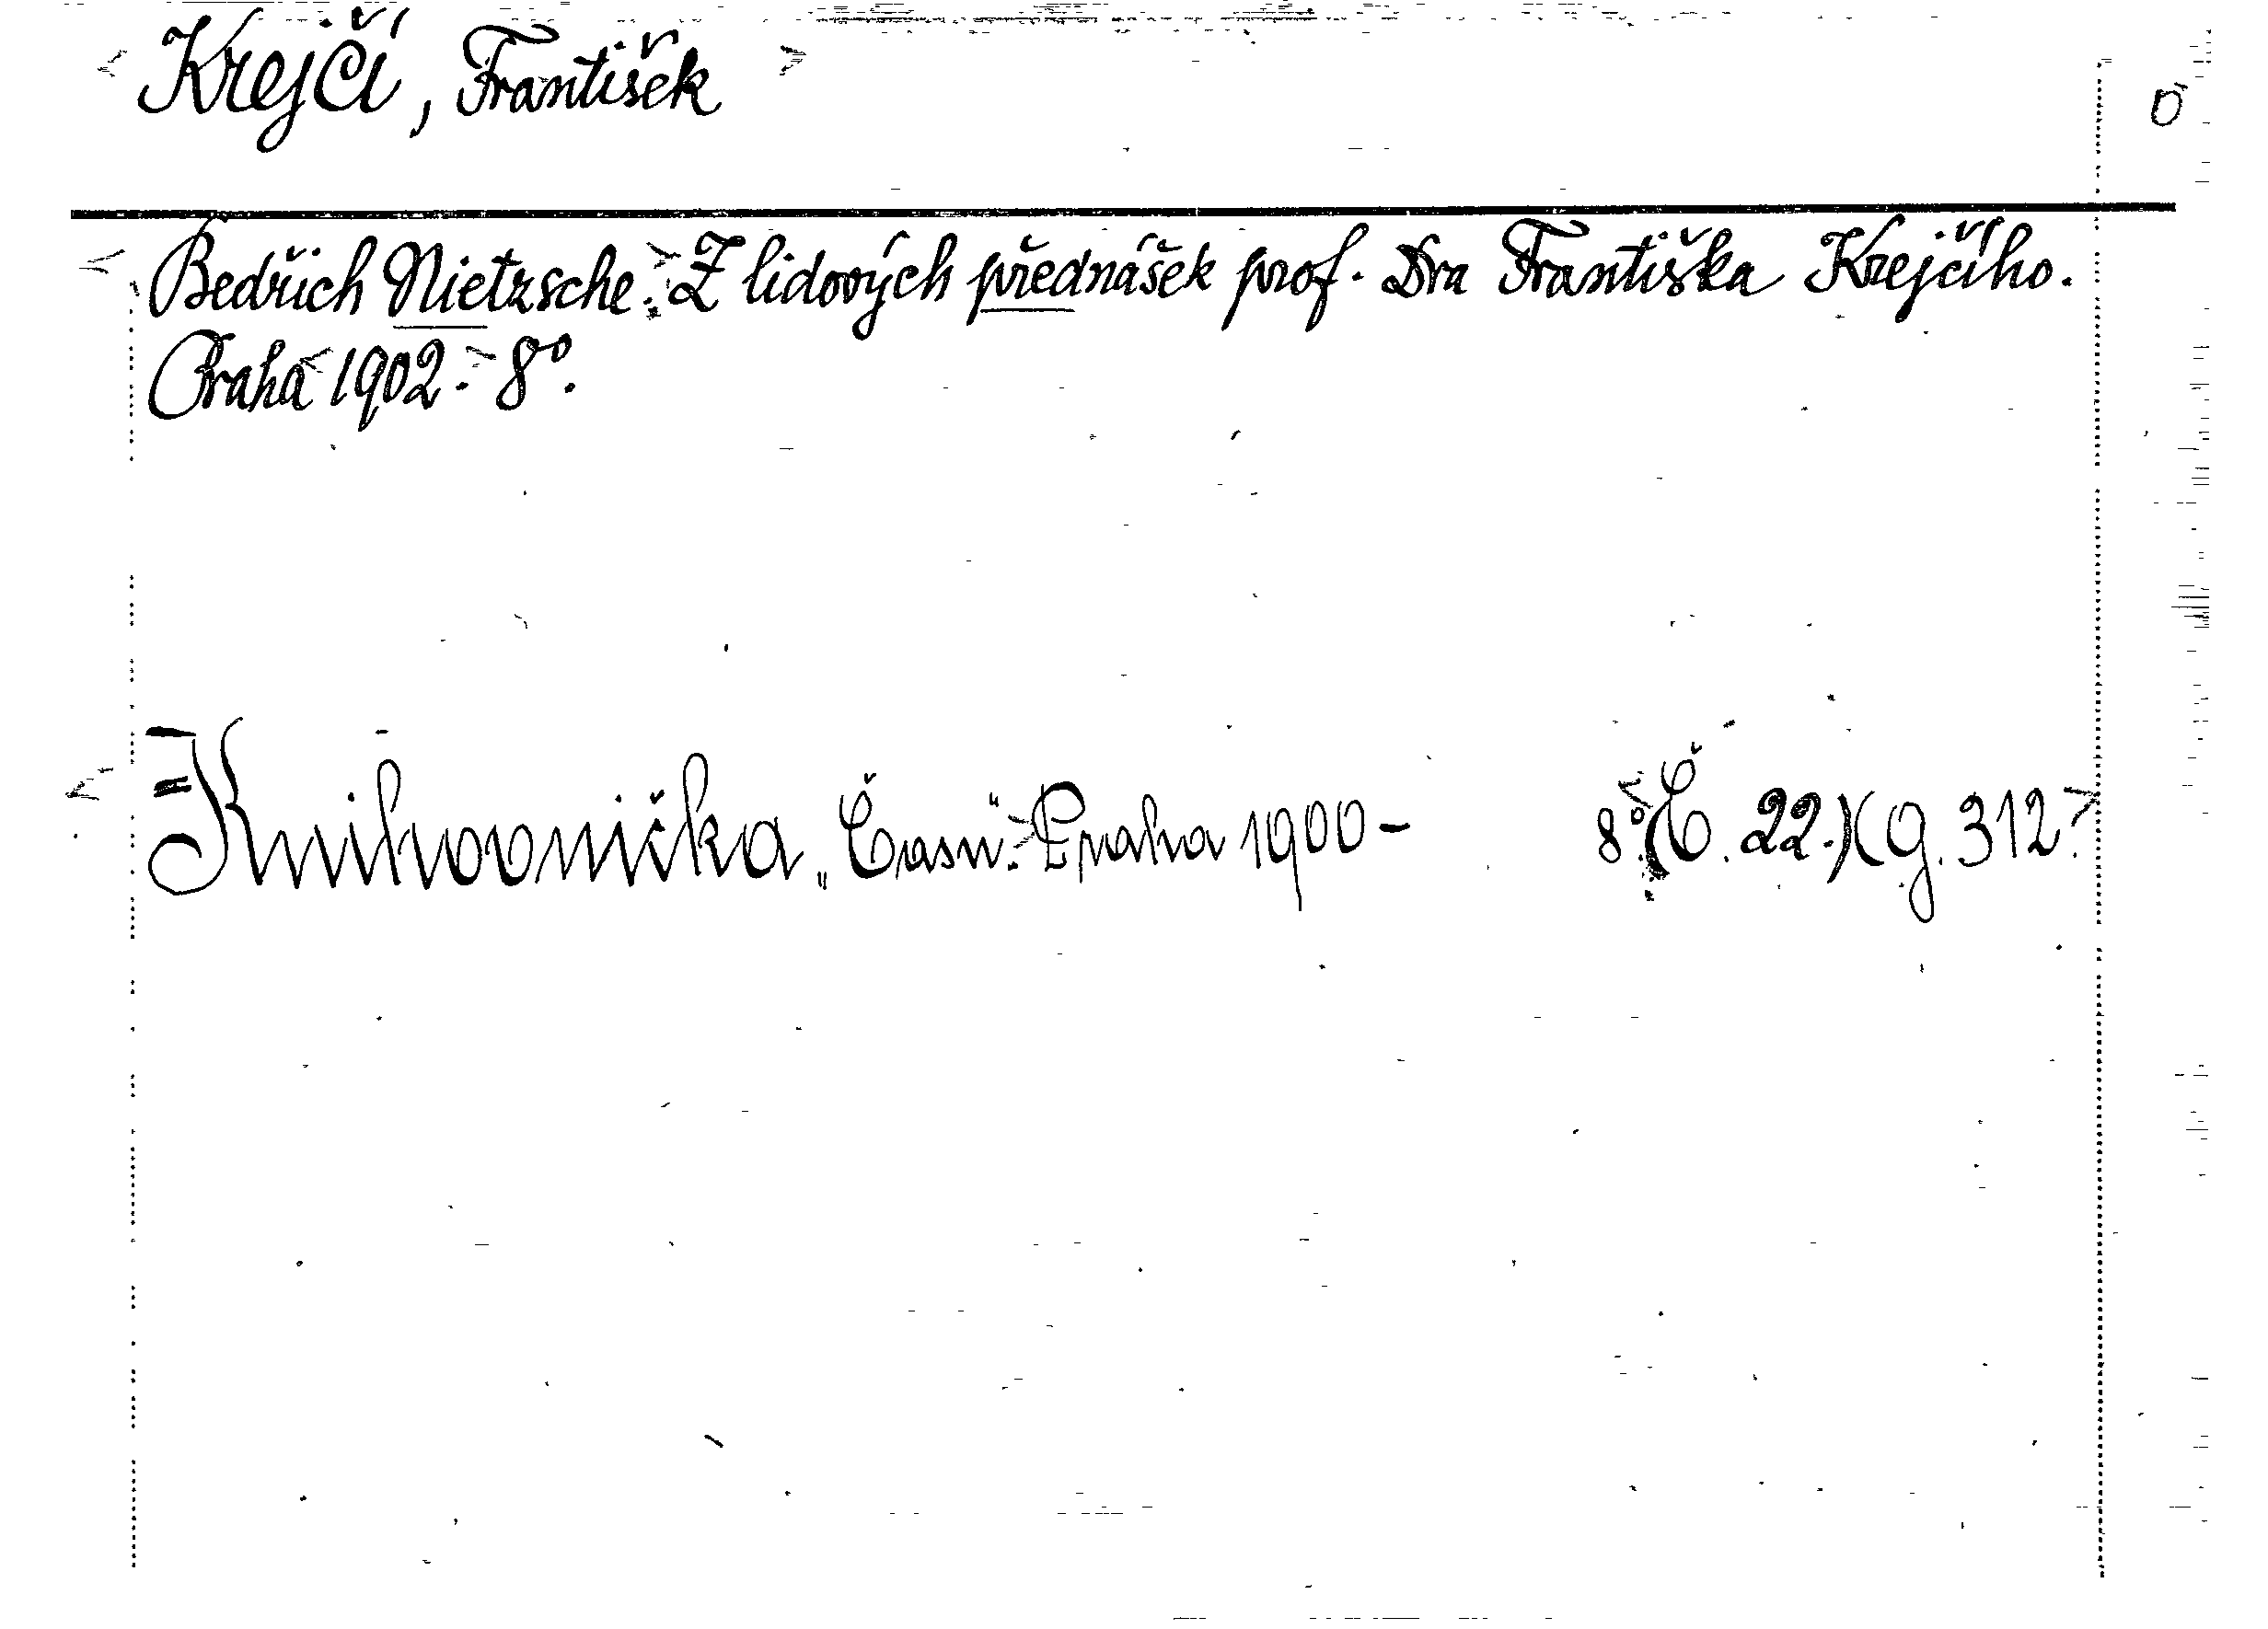 Krejčí, František
Bedřich Nietzsche. Z lidových přednášek prof. Dra Františka Krejčího.
Praha 1902. 8°.
Knihovnička „Času“. Praha 1900- 8°. (Č. 22.) (g. 312.